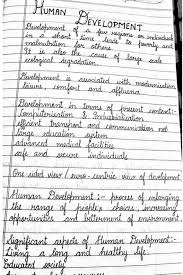 HUMAN
DEVELOPMENT
Development of a few regions or individuals
in a short time leads to poverty and
malnutrition for others
It is also the cause of large scale
ecological degradation
Development is associated with modernisation
leisure, comfort and affluence
Development in terms of present context:-
Computerisation & Industrialisation
efficient transport and communication net
large education system
advanced medical facilities
safe and secure individuals
One sided view / euro-centric view of development
Human Development :- process of enlarging
the range of people's choices, increasing
opportunities and betterment of environment
Significant aspects of Human Development :-
Living a long and healthy life
Educated society